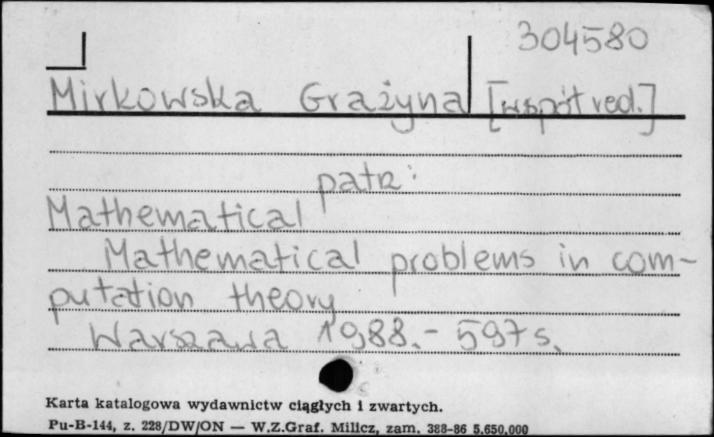 304580
Mirkowska Grażyna [współred.]
patrz:
Mathematical
Mathematical problems in com-
putation theory
Warszawa 1988. - 597 s.
Karta katalogowa wydawnictw ciągłych i zwartych.
Pu-B-144, z. 228/DW/ON — W.Z.Graf. Milicz, zam. 388-86 5.650.000